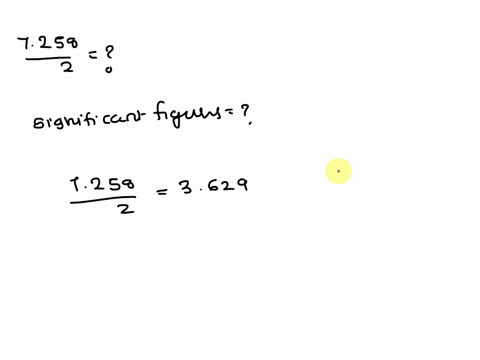 7.258 / 2 = ?
significant figures = ?
7.258 / 2 = 3.629